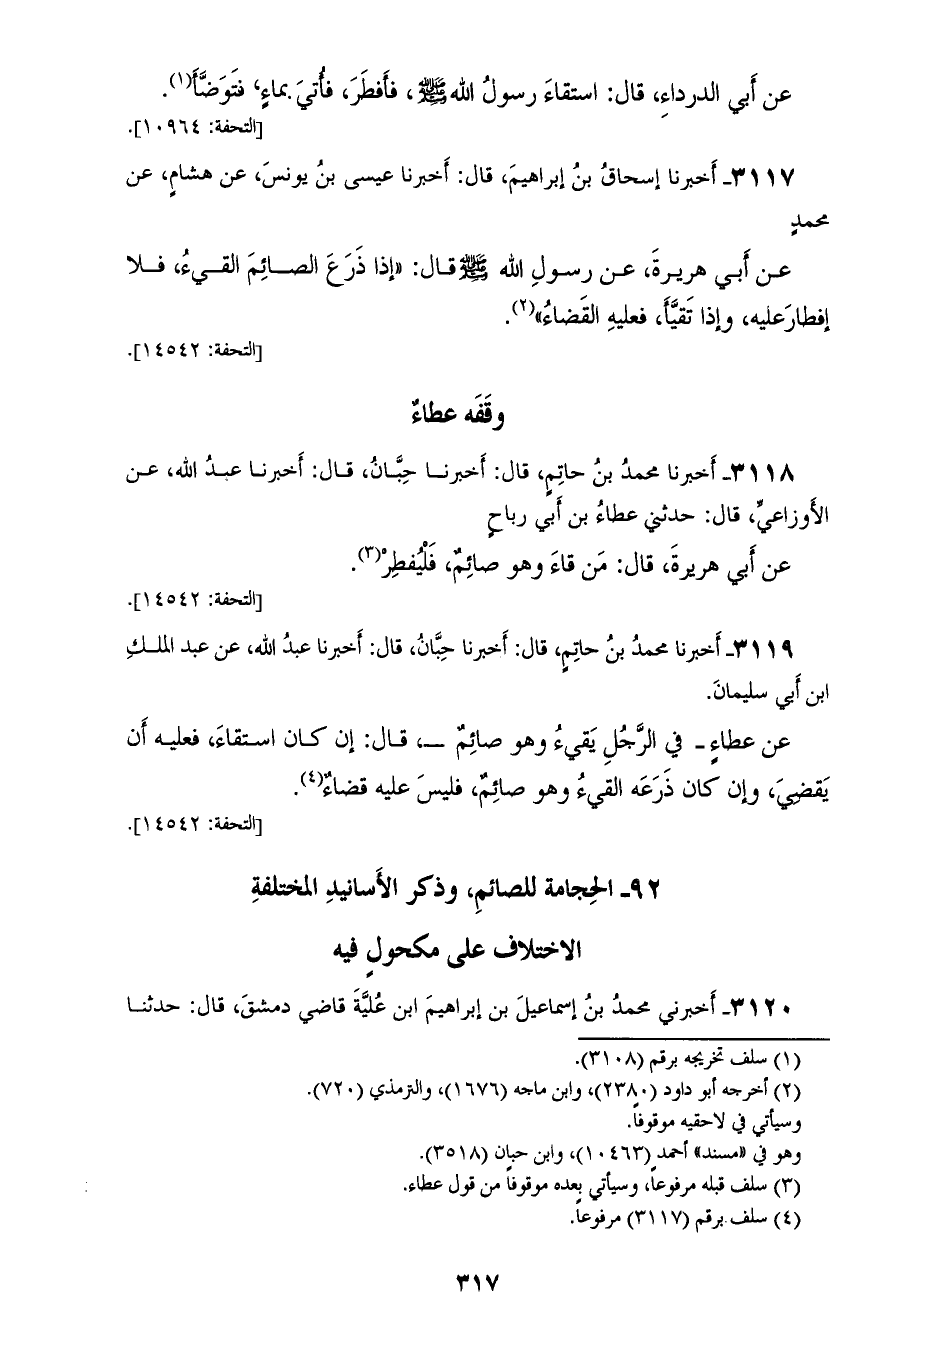 عن أَبي الدرداءِ، قال: استقاءَ رسولُ الله ﷺ، فأَفطَرَ، فأُتيَ بماءٍ، فتَوَضَّأَ(١).
[التحفة: ١٠٩٦٤].
٣١١٧ـ أَخبرنا إسحاقُ بنُ إبراهيمَ، قال: أَخبرنا عيسى بنُ يونسَ، عن هشامٍ، عن
محمدٍ
عن أَبي هريرةَ، عن رسولِ الله ﷺ قال: «إذا ذَرَعَ الصائِمَ القيءُ، فلا
إفطارَ عليه، وإذا تَقيَّأَ، فعليهِ القَضاءُ»(٢).
[التحفة: ١٤٥٤٢].
وقَفَه عطاءٌ
٣١١٨ـ أَخبرنا محمدُ بنُ حاتِمٍ، قال: أَخبرنا حِبَّانُ، قال: أَخبرنا عبدُ الله، عن
الأَوزاعيِّ، قال: حدثني عطاءُ بن أَبي رباحٍ
عن أَبي هريرةَ، قال: مَن قاءَ وهو صائِمٌ، فَلْيُفطِرْ(٣).
[التحفة: ١٤٥٤٢].
٣١١٩ـ أَخبرنا محمدُ بنُ حاتِمٍ، قال: أَخبرنا حِبَّانُ، قال: أَخبرنا عبدُ الله، عن عبد الملكِ
ابن أَبي سليمانَ.
عن عطاءٍ ـ في الرَّجُلِ يَقيءُ وهو صائِمٌ ـ، قال: إن كان استقاءَ، فعليه أَن
يَقضِيَ، وإن كان ذَرَعَه القيءُ وهو صائِمٌ، فليسَ عليه قضاءٌ(٤).
[التحفة: ١٤٥٤٢].
٩٢ـ الحِجامة للصائمِ، وذكر الأَسانيدِ المختلفةِ
الاختلاف على مكحولٍ فيه
٣١٢٠ـ أَخبرني محمدُ بنُ إسماعيلَ بن إبراهيمَ ابن عُليَّةَ قاضي دمشقَ، قال: حدثنا
(١) سلف تخريجه برقم (٣١٠٨).
(٢) أخرجه أبو داود (٢٣٨٠)، وابن ماجه (١٦٧٦)، والترمذي (٧٢٠).
وسيأتي في لاحقيه موقوفاً.
وهو في «مسند» أحمد (١٠٤٦٣)، وابن حبان (٣٥١٨).
(٣) سلف قبله مرفوعاً، وسيأتي بعده موقوفاً من قول عطاء.
(٤) سلف برقم (٣١١٧) مرفوعاً.
٣١٧